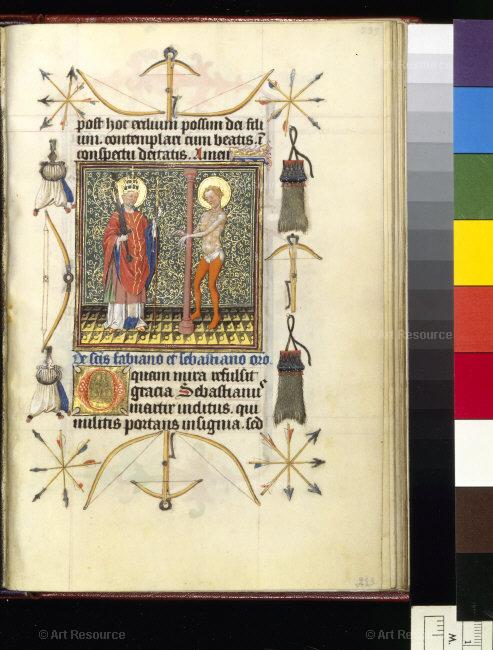 post hoc exilium possim dei fili
um. contemplari cum beatis. ī
conspectu deitatis. Amen
De scīs fabiano et sebastiano oro.
O quam mira refulsit
gracia. Sebastianus
martir inclitus. qui
militis portans insignia. sed
© Art Resource
© Art Resource
© Art Resource
© Art Resource
M
1